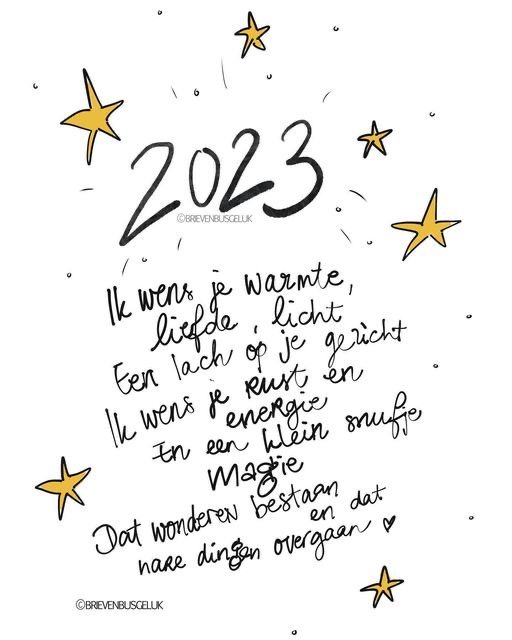 2023
©BRIEVENBUSGELUK
Ik wens je warmte,
liefde, licht,
Een lach op je gezicht
Ik wens je rust en
energie
En een klein snufje
magie
Dat wonderen bestaan
en dat
nare dingen overgaan ♥
©BRIEVENBUSGELUK